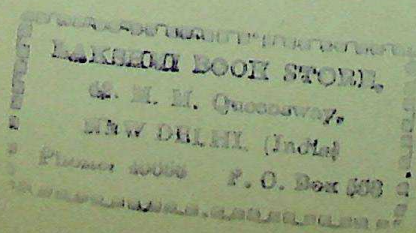 LAKSHMI BOOK STORE,
M. M. Queensway,
NEW DELHI. (India)
Phone: P. O. Box